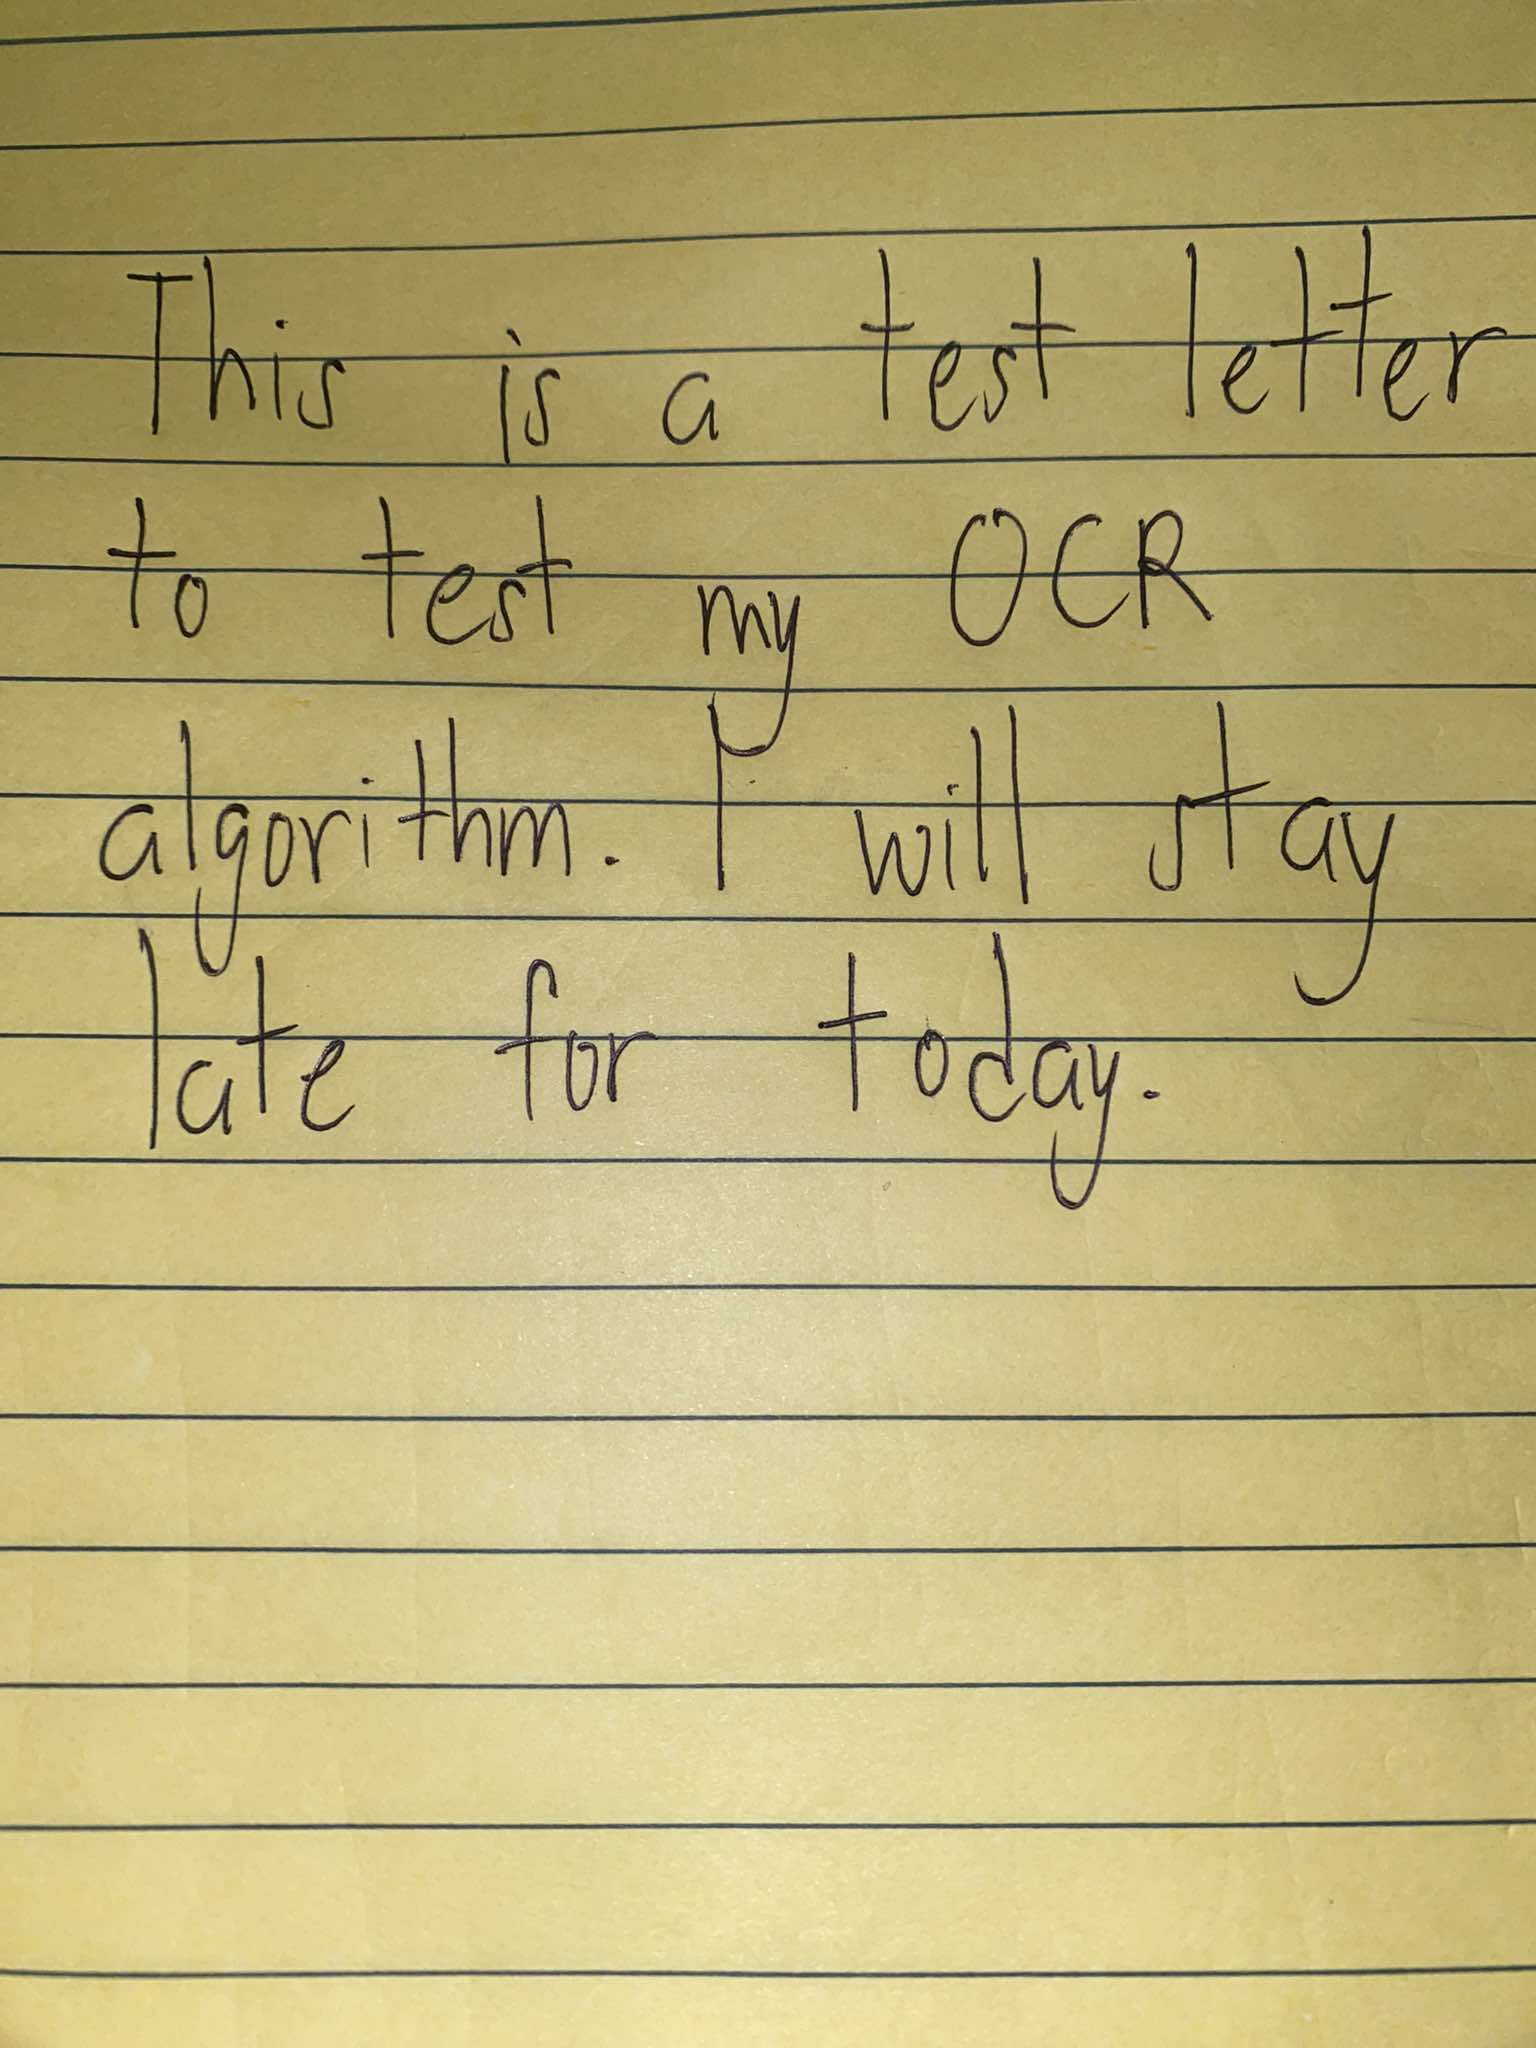 This is a test letter
to test my OCR
algorithm. I will stay
late for today.